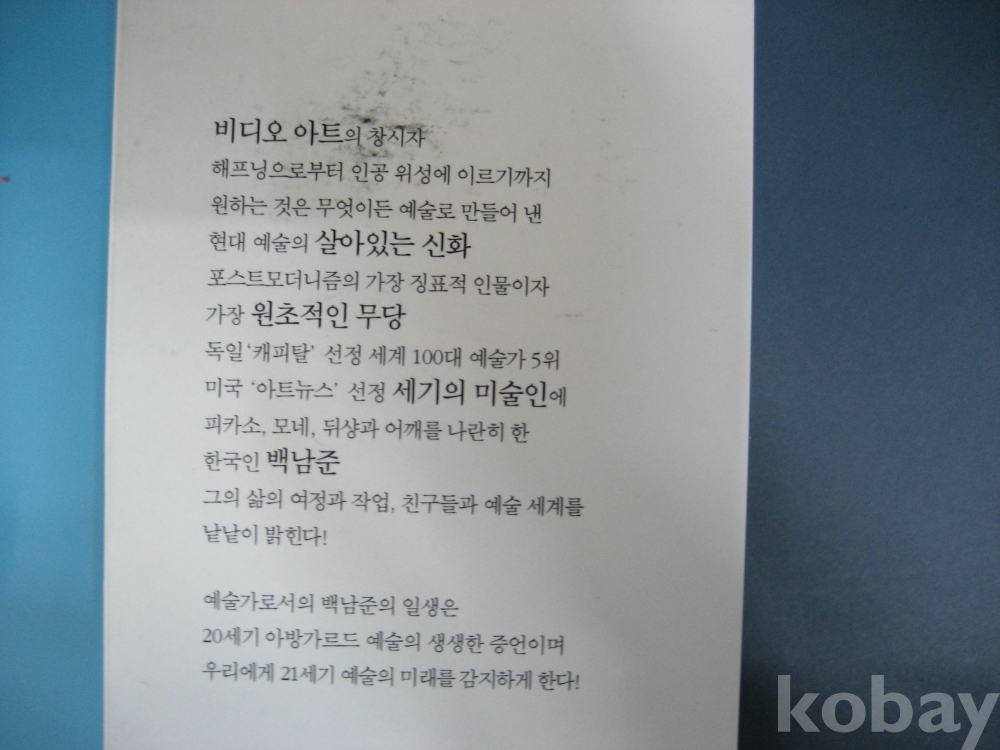 비디오 아트의 창시자
해프닝으로부터 인공 위성에 이르기까지
원하는 것은 무엇이든 예술로 만들어 낸
현대 예술의 살아있는 신화
포스트모더니즘의 가장 징표적 인물이자
가장 원초적인 무당
독일 '캐피탈' 선정 세계 100대 예술가 5위
미국 '아트뉴스' 선정 세기의 미술인에
피카소, 모네, 뒤샹과 어깨를 나란히 한
한국인 백남준
그의 삶의 여정과 작업, 친구들과 예술 세계를
낱낱이 밝힌다!
예술가로서의 백남준의 일생은
20세기 아방가르드 예술의 생생한 증언이며
우리에게 21세기 예술의 미래를 감지하게 한다!
kobay